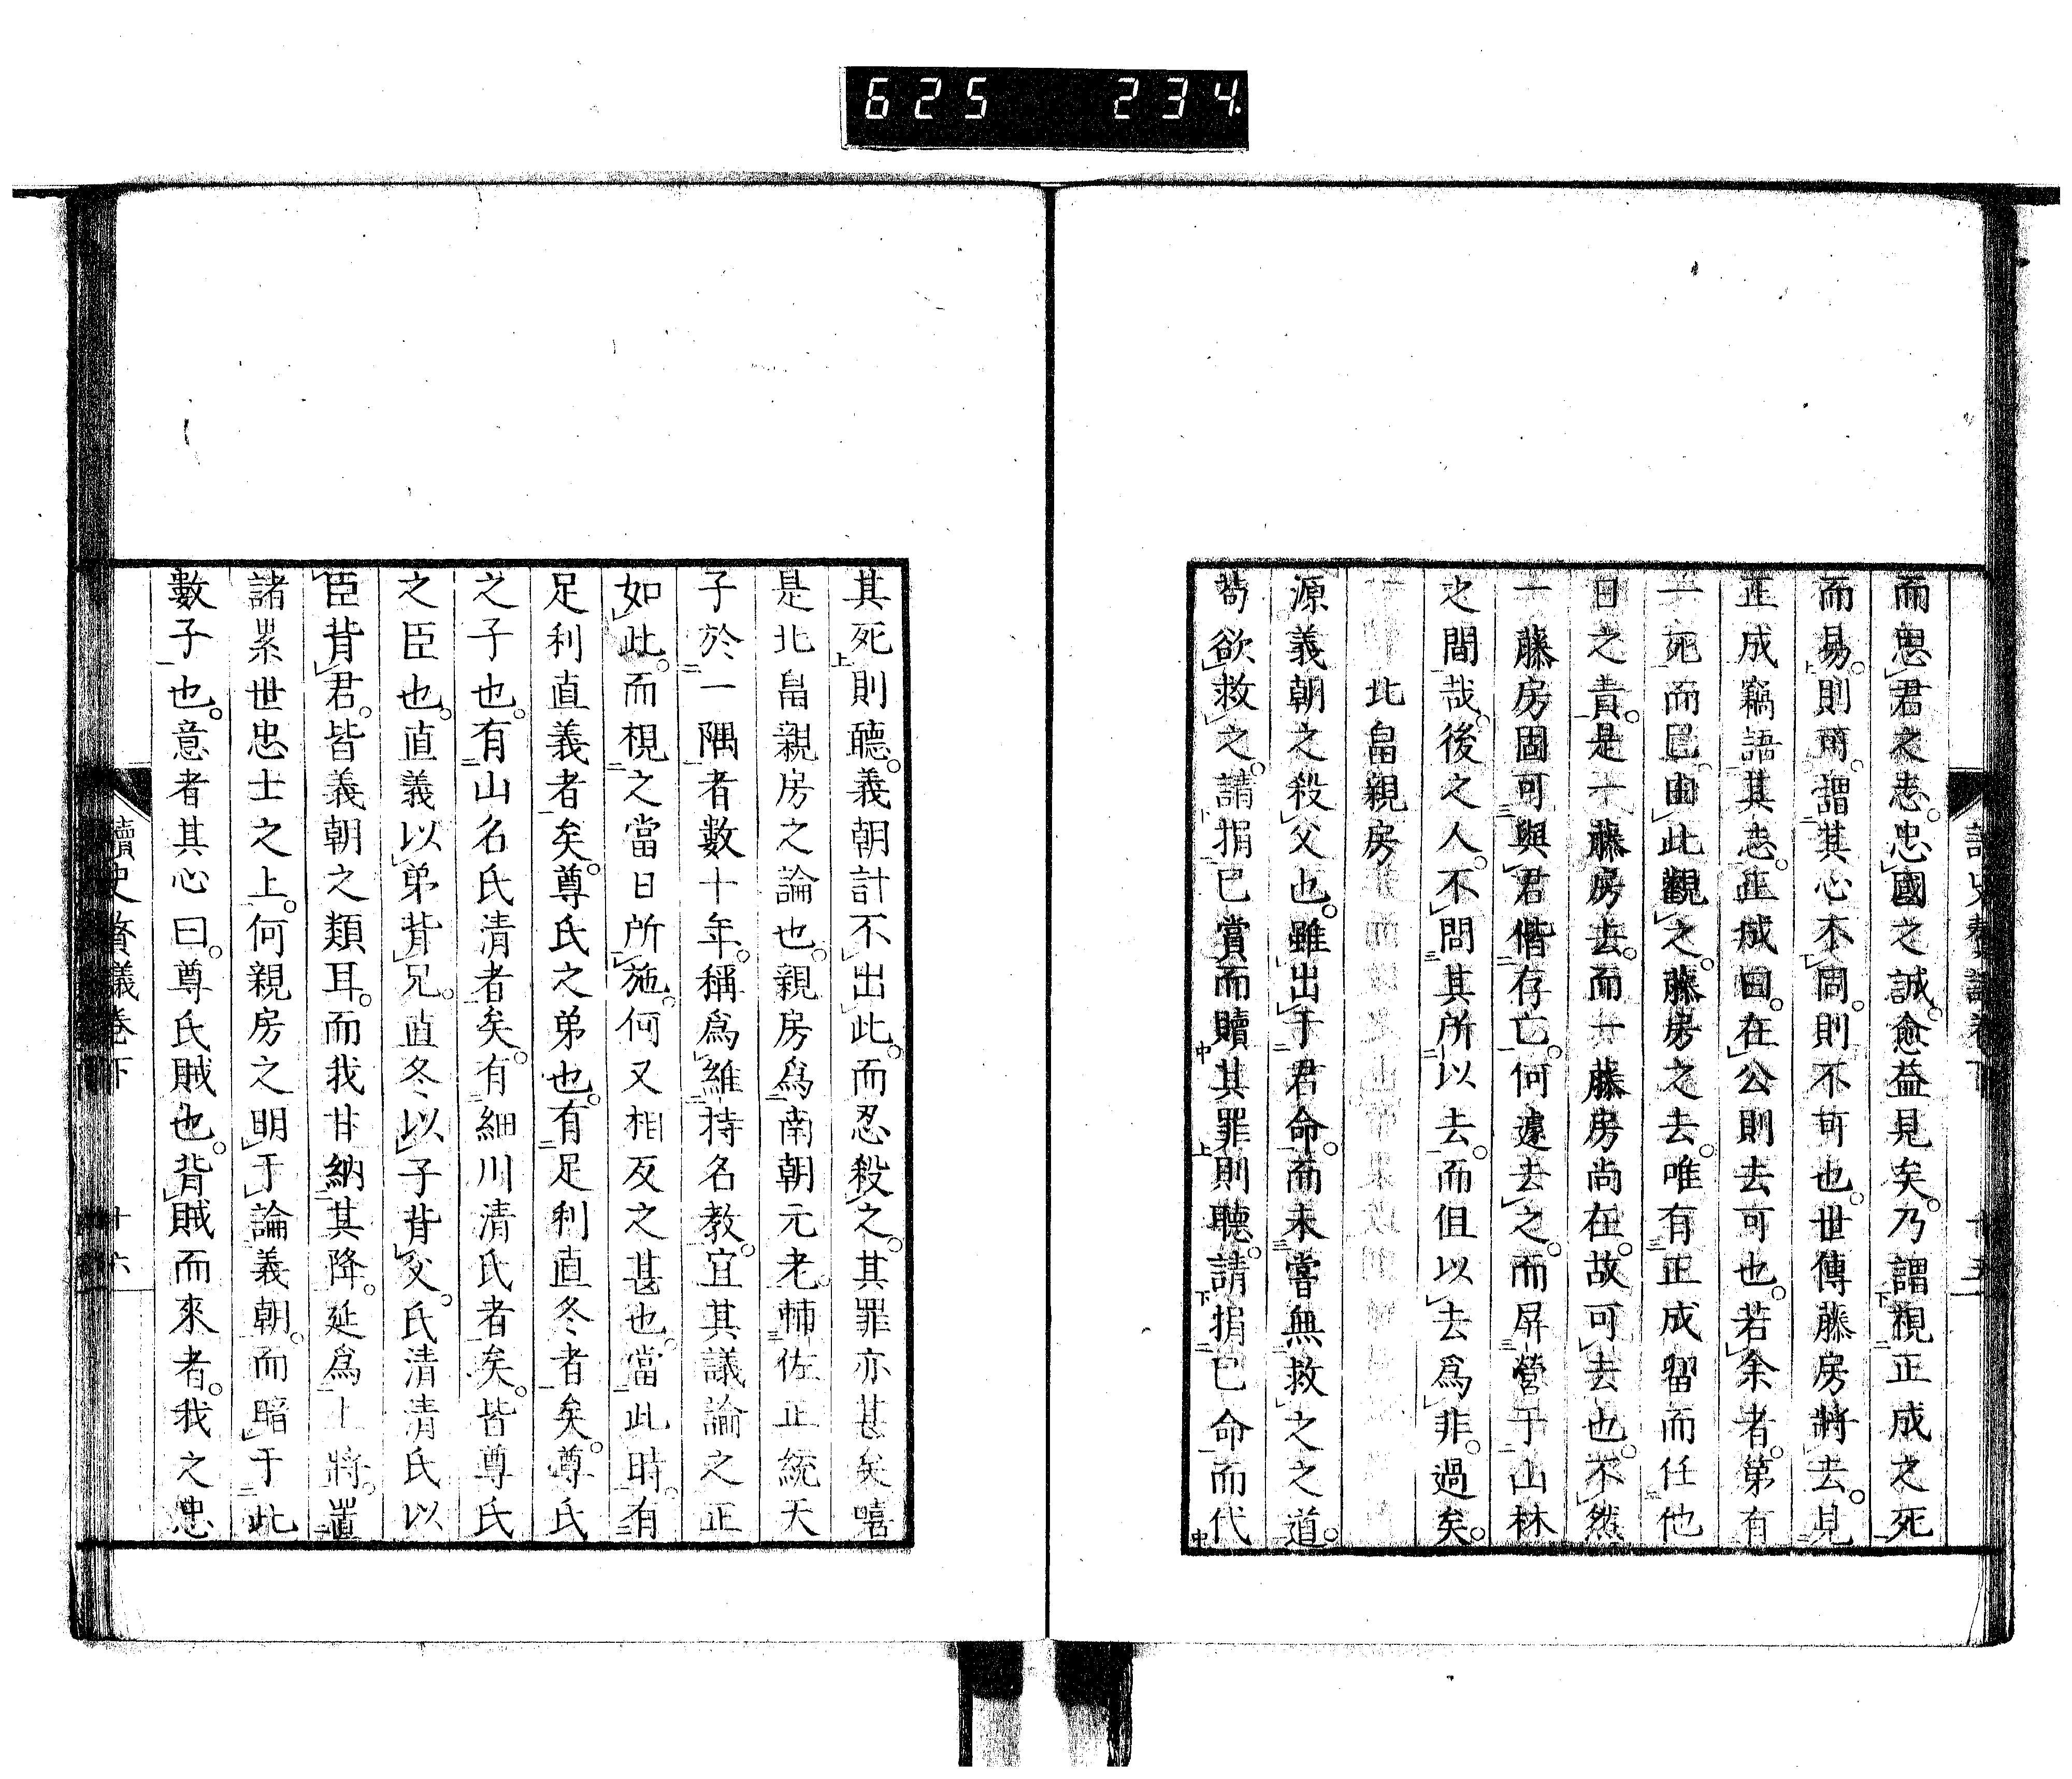 625 234
而思君之志。忠國之誠。愈益見矣。乃謂視正成之死
而易。則可。謂其心不問。則不可也。世傳藤房將去。見
正成竊語其志。正成曰。在公則去可也。若余者。第有
一死而已。由此觀之。藤房之去。唯有正成留而任他
日之責。是一藤房去。而一藤房尚在。故可去也。不然
一藤房固可與君偕存亡。何遽去之。而屏營于山林
之間哉。後之人。不問其所以去。而但以去爲非。過矣。
北畠親房
源義朝之殺父也。雖出于君命。而未嘗無救之之道。
苟欲救之。請捐已賞而贖其罪則聽。請捐已命而代
讀史贅議卷下
十五
其死則聽。義朝計不出此。而忍殺之。其罪亦甚矣嘻
是北畠親房之論也。親房爲南朝元老。輔佐正統天
子於一隅者數十年。稱爲維持名教。宜其議論之正
如此。而視之當日所施。何又相反之甚也。當此時。有
足利直義者矣。尊氏之弟也。有足利直冬者矣。尊氏
之子也。有山名氏清者矣。有細川清氏者矣。皆尊氏
之臣也。直義以弟背兄。直冬以子背父。氏清清氏以
臣背君。皆義朝之類耳。而我甘納其降。延爲上將。置
諸累世忠士之上。何親房之明于論義朝。而暗于此
數子也。意者其心曰。尊氏賊也。背賊而來者。我之忠
讀史贅議卷下
十六